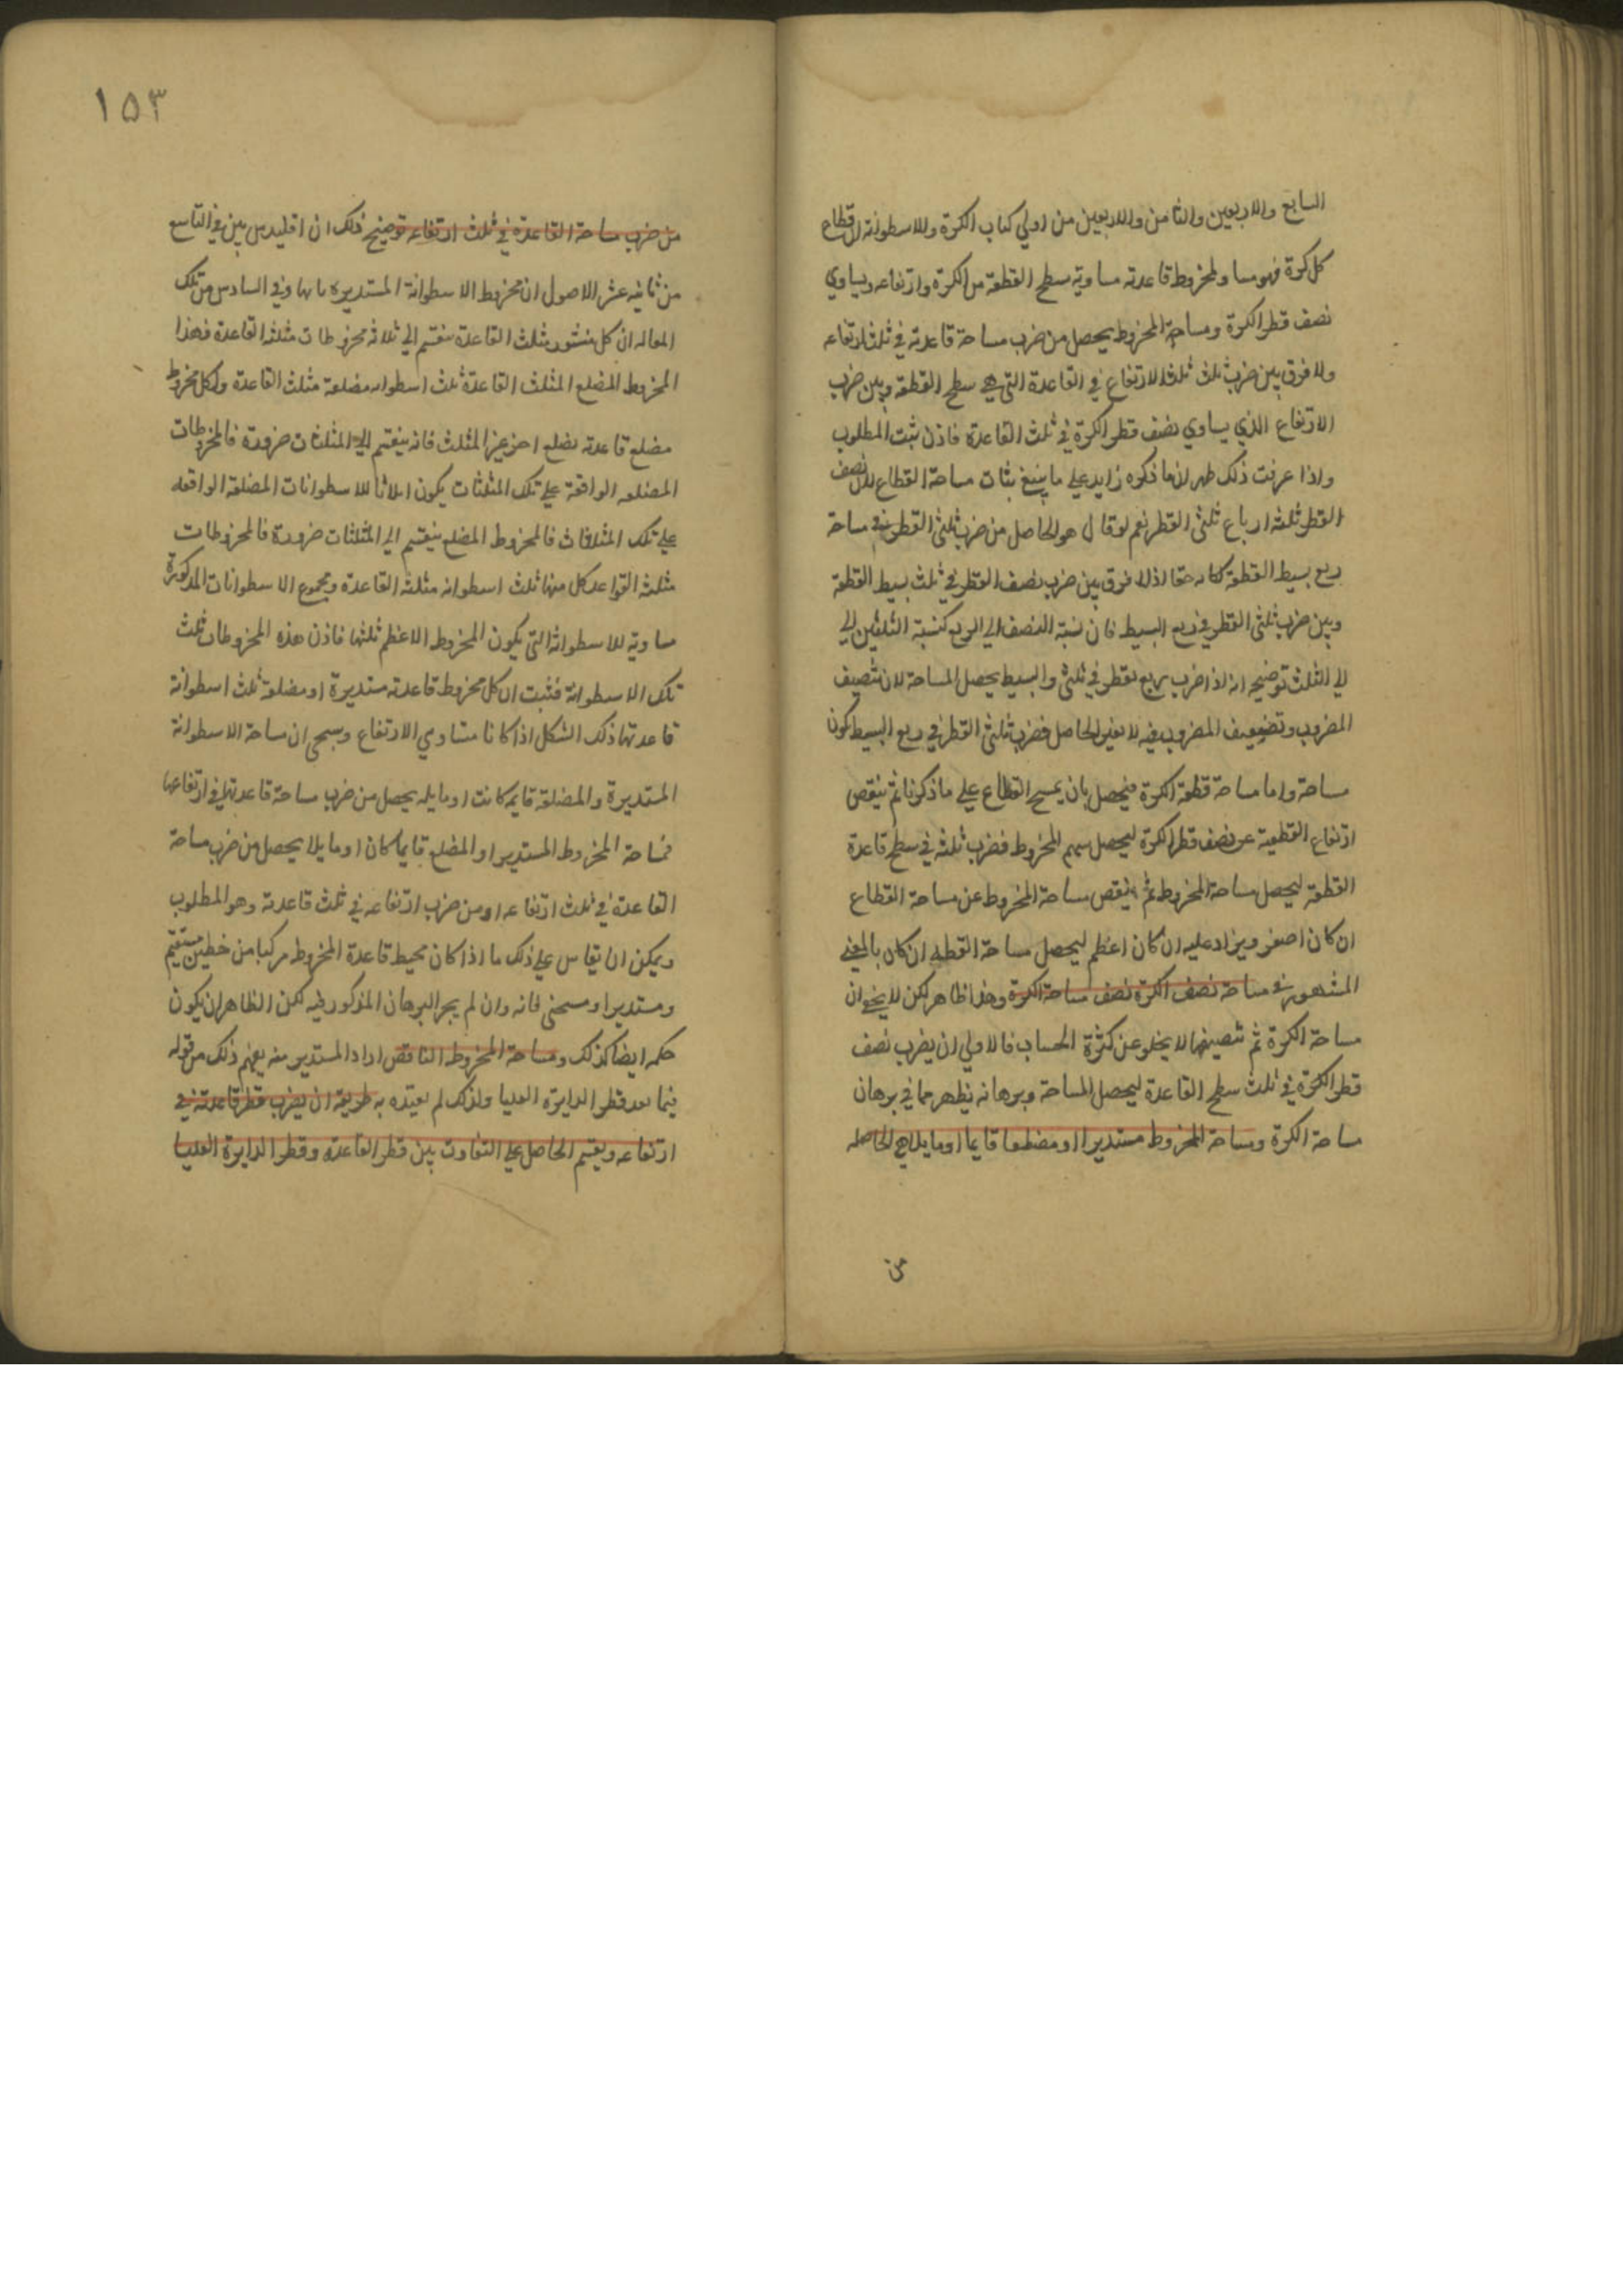 السابع والاربعين والثامن والاربعين من اولي كتاب الكرة والاسطوانة ان قطاع
كل كرة فهو مساو لمخروط قاعدته مساوية سطح القطعة من الكرة وارتفاعه يساوي
نصف قطر الكرة ومساحة المخروط يحصل من ضرب مساحة قاعدته في ثلث ارتفاعه
ولا فرق بين ضرب ثلث الارتفاع في القاعدة التي هي سطح القطعة وبين ضرب
الارتفاع الذي يساوي نصف قطر الكرة في ثلث القاعدة فاذن ثبت المطلوب
واذا عرفت ذلك ظهر ان ما ذكره زايد على ما ينبغي بثات مساحة القطاع لان نصف
القطر ثلثة ارباع ثلثي القطر نعم لو قال هو الحاصل من ضرب ثلثي القطر في مساحة
ربع بسيط القطعة لكان حقا اذ لا فرق بين ضرب نصف القطر في ثلث بسيط القطعة
وبين ضرب ثلثي القطر في ربع البسيط فان نسبة النصف الي الربع كنسبة الثلثين الي
الي الثلث توضيحه انه اذا ضرب ربع القطر في ثلثي البسيط يحصل المساحة لان تنصيف
المضروب وتضعيف المضروب فيه لا يغير الحاصل فضرب ثلثي القطر في ربع البسيط كون
مساحة واما مساحة قطعة الكرة فيحصل بان يمسح القطاع علي ما ذكرنا ثم ينقص
ارتفاع القطعة عن نصف قطر الكرة ليحصل سهم المخروط فضرب ثلثه في سطح قاعدة
القطعة ليحصل مساحة المخروط ثم ينقص مساحة المخروط عن مساحة القطاع
ان كان اصغر ويزاد عليه ان كان اعظم ليحصل مساحة القطعه ان كان بالمعني
المشهور في مساحة نصف الكرة نصف مساحة الكرة وهذا ظاهر لكن لا يخفي ان
مساحة الكرة ثم تنصيفها لا يخلو عن كثرة الحساب فالاولي ان يضرب نصف
قطر الكرة في ثلث سطح القاعدة ليحصل المساحة وبرهانه يظهر مما في برهان
مساحة الكرة ومساحة المخروط مستديرا او مضلعا قايما او مايلا هي الحاصله
من
١٥٣
من ضرب مساحة القاعدة في ثلث ارتفاعه توضيح ذلك ان اقليدس بين في التاسع
من ثانيه عشر الاصول ان مخروط الاسطوانة المستديره ثلثها وفي السادس من تلك
المقاله ان كل منشور مثلث القاعدة ينقسم الي ثلاثه مخروطات مثلثه القاعدة فهذا
المخروط المضلع المثلث القاعدة ثلث اسطوانه مضلعة مثلث القاعدة وكل مخروط
مضلع قاعدته مضلع اخر غير المثلث فانه ينقسم الي المثلثات ضرورة فالمخروطات
المضلعه الواقعة علي تلك المثلثات يكون اثلاثا للاسطوانات المضلعة الواقعه
علي تلك المثلثات فالمخروط المضلع ينقسم الي المثلثات ضرورة فالمخروطات
مثلث القواعد كل منها ثلث اسطوانه مثلثه القاعدة ومجموع الاسطوانات المذكورة
مساوية للاسطوانة التي يكون المخروط الاعظم ثلثها فاذن هذه المخروطات ثلث
تلك الاسطوانة فثبت ان كل مخروط قاعدته مستديرة او مضلعة ثلث اسطوانة
قاعدتها ذلك الشكل اذا كانا متساوي الارتفاع وسيجي ان مساحة الاسطوانة
المستديرة والمضلعة قايمه كانت او مايله يحصل من ضرب مساحة قاعدتها في ارتفاعها
فمساحة المخروط المستدير او المضلع قايما كان او مايلا يحصل من ضرب مساحة
القاعدة في ثلث ارتفاعه او من ضرب ارتفاعه في ثلث قاعدته وهو المطلوب
ويمكن ان يقاس علي ذلك ما اذا كان محيط قاعدة المخروط مركبا من خطين مستقيم
ومستدير او منحني فانه وان لم يجر البرهان المذكور فيه لكن الظاهر ان يكون
حكمه ايضا كذلك ومساحة المخروط الناقص اراد المستدير منه يفهم ذلك من قوله
فيما بعد قطر الدايرة العليا ولذلك لم يقيده به طريقه ان يضرب قطر قاعدته في
ارتفاعه ويقسم الحاصل علي التفاوت بين قطر القاعدة وقطر الدايرة العليا